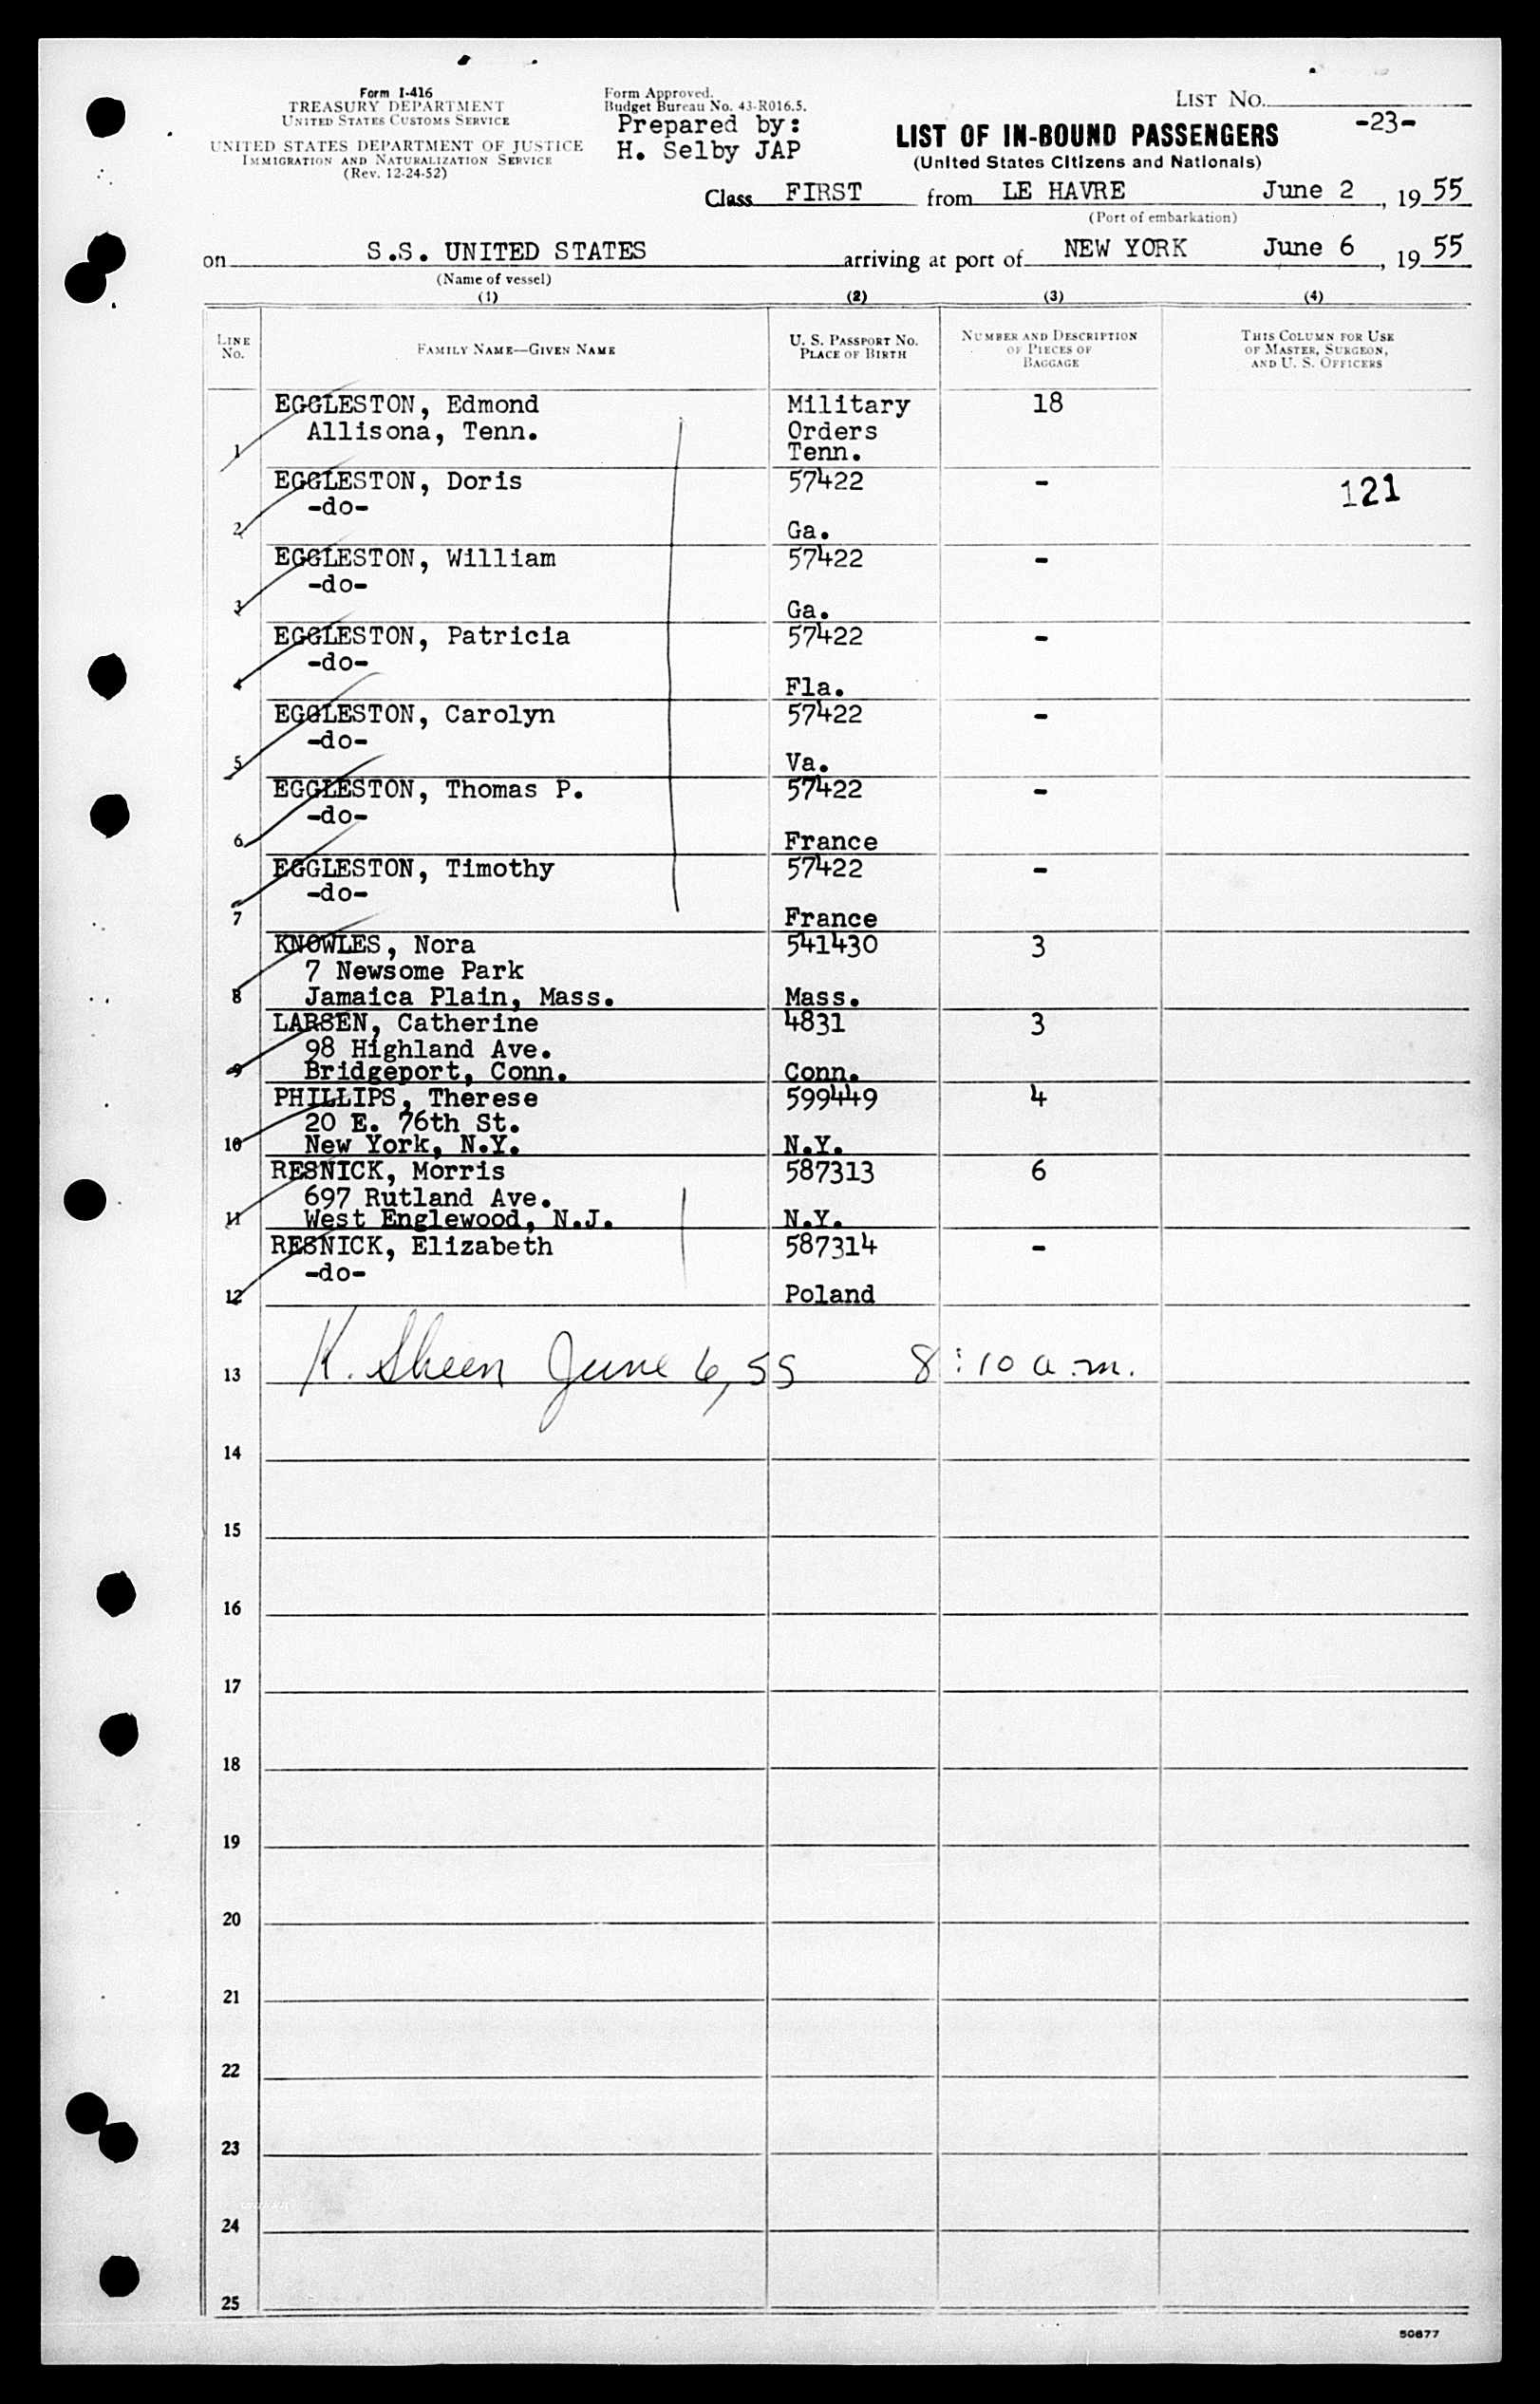 Form I-416
TREASURY DEPARTMENT
UNITED STATES CUSTOMS SERVICE
UNITED STATES DEPARTMENT OF JUSTICE
IMMIGRATION AND NATURALIZATION SERVICE
(Rev. 12-24-52)
Form Approved.
Budget Bureau No. 43-R016.5.
Prepared by:
H. Selby JAP
LIST NO.
-23-
LIST OF IN-BOUND PASSENGERS
(United States Citizens and Nationals)
Class FIRST from LE HAVRE June 2, 1955
(Port of embarkation)
on S.S. UNITED STATES arriving at port of NEW YORK June 6, 1955
(Name of vessel)
(1) (2) (3) (4)
LINE No.
FAMILY NAME—GIVEN NAME
U. S. PASSPORT NO.
PLACE OF BIRTH
NUMBER AND DESCRIPTION
OF PIECES OF
BAGGAGE
THIS COLUMN FOR USE
OF MASTER, SURGEON,
AND U. S. OFFICERS
EGGLESTON, Edmond Military 18
Allisona, Tenn. Orders
1 Tenn.
EGGLESTON, Doris 57422 -
-do- 121
2 Ga.
EGGLESTON, William 57422 -
-do-
3 Ga.
EGGLESTON, Patricia 57422 -
-do-
4 Fla.
EGGLESTON, Carolyn 57422 -
-do-
5 Va.
EGGLESTON, Thomas P. 57422 -
-do-
6 France
EGGLESTON, Timothy 57422 -
-do-
7 France
KNOWLES, Nora 541430 3
7 Newsome Park
8 Jamaica Plain, Mass. Mass.
LARSEN, Catherine 4831 3
98 Highland Ave.
9 Bridgeport, Conn. Conn.
PHILLIPS, Therese 599449 4
20 E. 76th St.
10 New York, N.Y. N.Y.
RESNICK, Morris 587313 6
697 Rutland Ave.
11 West Englewood, N.J. N.Y.
RESNICK, Elizabeth 587314 -
-do-
12 Poland
13 K. Sheen June 6, 55 8:10 a.m.
14
15
16
17
18
19
20
21
22
23
24
25
50877